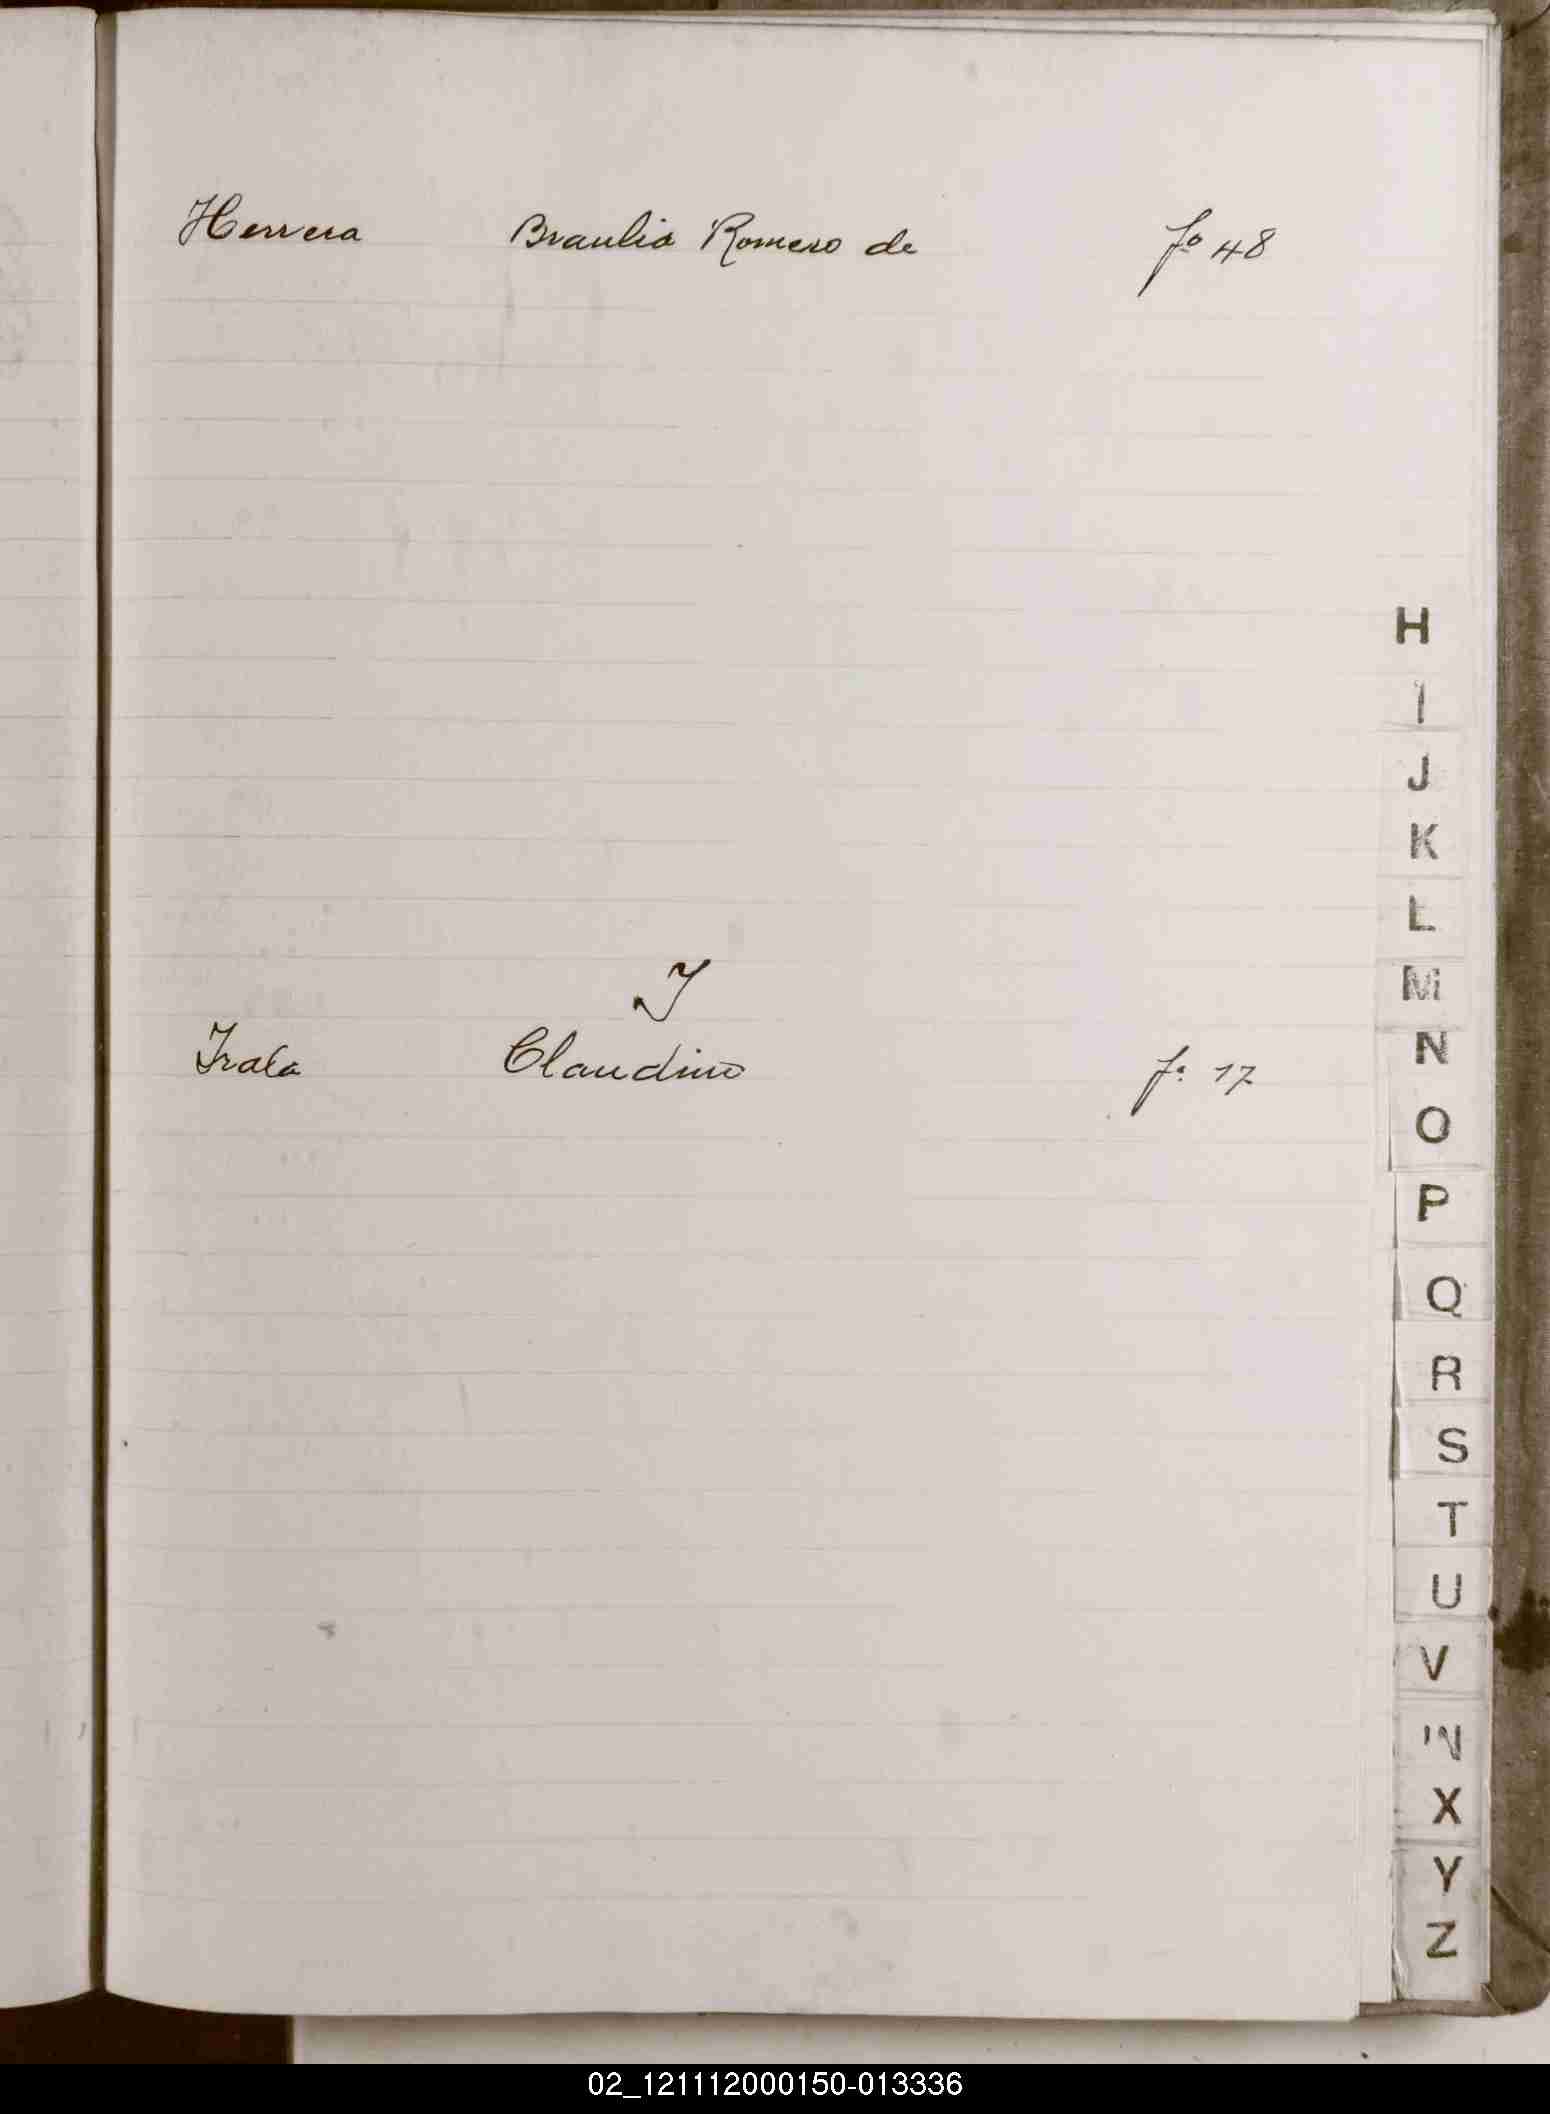 Herrera Braulia Romero de fº 48
I
Irala Claudino fº 17
H
I
J
K
L
M
N
O
P
Q
R
S
T
U
V
W
X
Y
Z
02_121112000150-013336